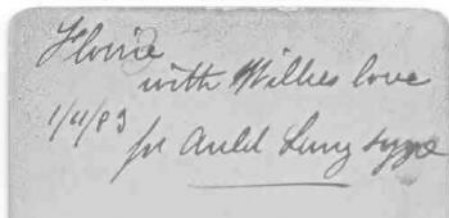 Florrie
with Willies love
1/11/83
for Auld Lang syne